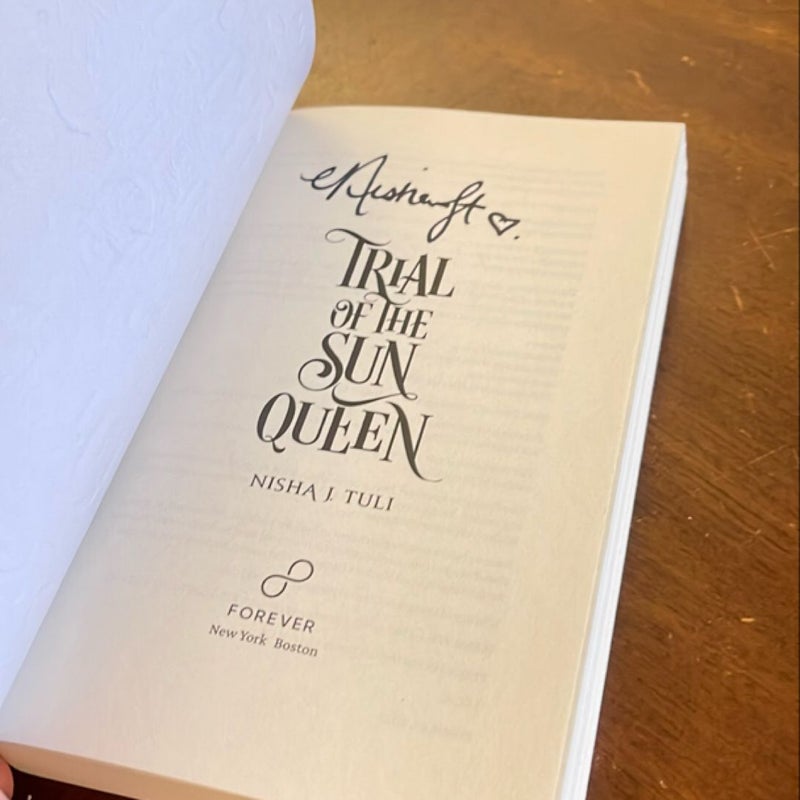 TRIAL
OF THE
SUN
QUEEN
NISHA J. TULI
FOREVER
New York Boston